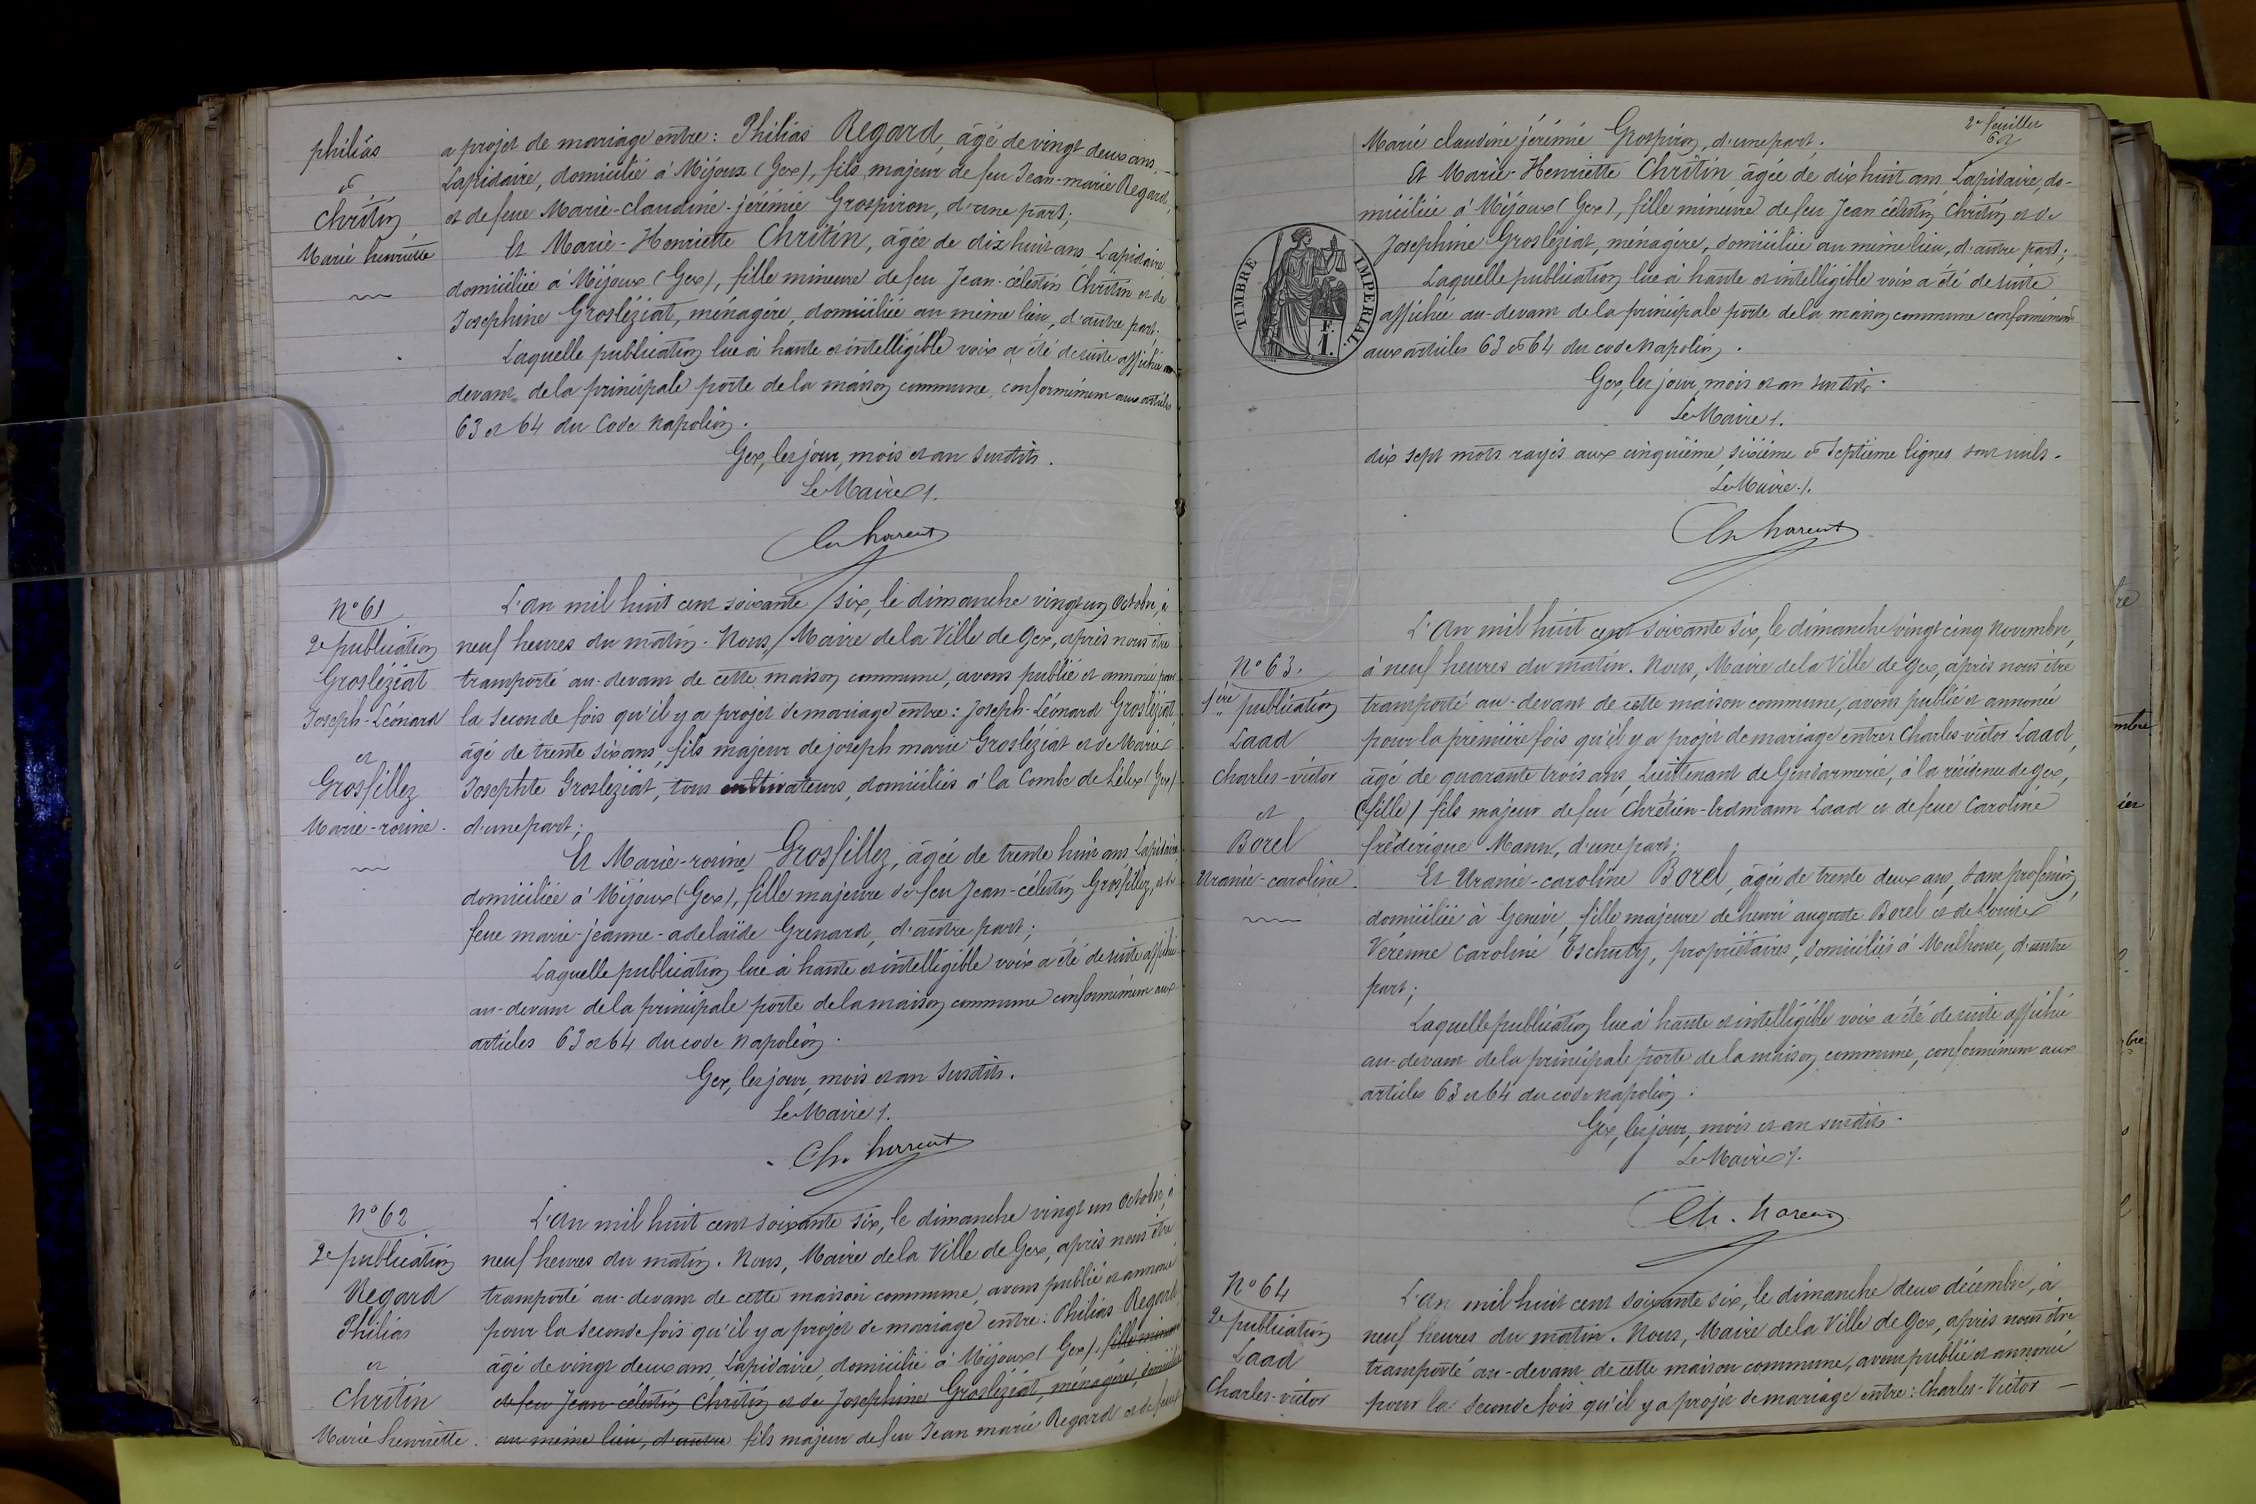 philiás
et
Chritin
Marie henriette
a projet de mariage entre: Philiás Regard, âgé de vingt deux ans,
Lapidaire, domicilié à Mijoux (Gex), fils majeur de feu Jean-marie Regard,
et de feue Marie-claudine-jérémie Grospiron, d'une part;
Et Marie-Henriette Chritin, âgée de dix huit ans Lapidaire,
domiciliée à Mijoux (Gex), fille mineure de feu Jean-célestin Chritin et de
Josephine Grosléziat, ménagère, domiciliée au même lieu, d'autre part;
Laquelle publication lue à haute et intelligible voix a été de suite affichée au
devant de la principale porte de la maison commune, conformément aux articles
63 et 64 du Code Napoléon.
Gex, les jour, mois et an susdits.
Le Maire /.
Ch harent
N° 61
2e publication
Grosléziat
Joseph-Léonard
et
Grosfillez
Marie-rosine.
L'an mil huit cent soixante six, le dimanche vingt un Octobre, à
neuf heures du matin. Nous, Maire de la Ville de Gex, après nous être
transporté au-devant de cette maison commune, avons publié et annoncé pour
la seconde fois qu'il y a projet de mariage entre: Joseph-Léonard Grosléziat
âgé de trente six ans, fils majeur de joseph marie Grosléziat et de Marie
Josephte Grosléziat, tous cultivateurs, domiciliés à la Combe de Lélex (Gex)
d'une part;
Et Marie-rosine Grosfillez, âgée de trente huit ans Lapidaire
domiciliée à Mijoux (Gex), fille majeure de feu Jean-célestin Grosfillez, et de
feue marie-jeanne-adelaïde Grenard, d'autre part;
Laquelle publication lue à haute et intelligible voix a été de suite affichée
au-devant de la principale porte de la maison commune conformément aux
articles 63 et 64 du code Napoléon.
Gex, les jour, mois et an susdits.
Le Maire /.
Ch. harent
N° 62
2e publication
Regard
Philias
et
Chritin
Marie henriette.
L'An mil huit cent soixante six, le dimanche vingt un Octobre, à
neuf heures du matin. Nous, Maire de la Ville de Gex, après nous être
transporté au-devant de cette maison commune, avons publié et annoncé
pour la seconde fois qu'il y a projet de mariage entre: Philias Regard,
âgé de vingt deux ans, Lapidaire, domicilié à Mijoux (Gex), fille mineure
de feu Jean-célestin Chritin et de Josephine Grosléziat, ménagère, domiciliée
au même lieu, d'autre fils majeur de feu Jean marie Regard et de feue
2e feuillet
Marie claudine jérémie Grospiron, d'une part.
Et Marie-Henriette Chritin âgée de dix huit ans Lapidaire, do-
miciliée à Mijoux (Gex), fille mineure de feu Jean célestin Chritin et de
Josephine Grosléziat, ménagère, domiciliée au même lieu, d'autre part;
Laquelle publication lue à haute et intelligible voix a été de suite
affichée au-devant de la principale porte de la maison commune conformément
aux articles 63 et 64 du code Napoléon.
TIMBRE IMPÉRIAL.
F.
1.
Gex, les jour, mois et an susdits.
Le Maire /.
dix sept mots rayés aux cinquième, sixième et septième lignes sont nuls.
Le Maire /.
Ch harent
N° 63.
1ère publication
Laad
Charles-victor
et
Borel
Uranie-caroline.
L'An mil huit cent soixante six, le dimanche vingt cinq Novembre,
à neuf heures du matin. Nous, Maire de la Ville de Gex, après nous être
transporté au-devant de cette maison commune, avons publié et annoncé
pour la première fois qu'il y a projet de mariage entre: Charles-victor Laad,
âgé de quarante trois ans, Lieutenant de Gendarmerie, à la résidence de gex,
(fille) fils majeur de feu Chrétien-Erdmann Laad et de feue Caroline
frédérique Mann, d'une part;
Et Uranie-caroline Borel, âgée de trente deux ans, sans profession,
domiciliée à Genève, fille majeure de henri auguste Borel et de Louise
Verenne Caroline Tschudy, propriétaires, domiciliés à Mulhouse, d'autre
part;
Laquelle publication lue à haute et intelligible voix a été de suite affichée
au-devant de la principale porte de la maison commune, conformément aux
articles 63 et 64 du code napoléon.
Gex, les jour, mois et an susdits.
Le Maire /.
Ch. harent
N° 64
2e publication
Laad
Charles-victor
L'An mil huit cent soixante six, le dimanche deux décembre, à
neuf heures du matin. Nous, Maire de la Ville de Gex, après nous être
transporté au-devant de cette maison commune, avons publié et annoncé
pour la seconde fois qu'il y a projet de mariage entre: Charles-Victor